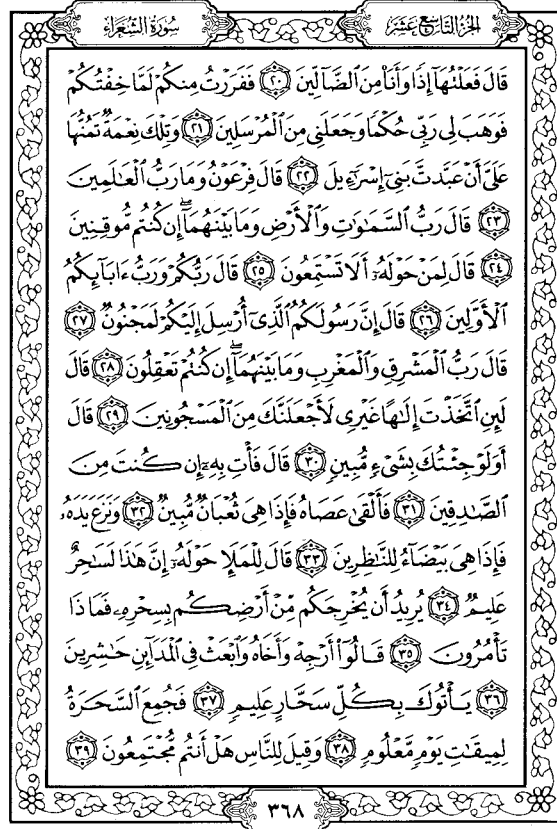 الجزء التاسع عشر
سورة الشعراء
قَالَ فَعَلْتُهَآ إِذًا وَأَنَا۠ مِنَ ٱلضَّآلِّينَ ۝٢٠ فَفَرَرْتُ مِنكُمْ لَمَّا خِفْتُكُمْ
فَوَهَبَ لِى رَبِّى حُكْمًا وَجَعَلَنِى مِنَ ٱلْمُرْسَلِينَ ۝٢١ وَتِلْكَ نِعْمَةٌ تَمُنُّهَا
عَلَىَّ أَنْ عَبَّدتَّ بَنِىٓ إِسْرَٰٓءِيلَ ۝٢٢ قَالَ فِرْعَوْنُ وَمَا رَبُّ ٱلْعَٰلَمِينَ
۝٢٣ قَالَ رَبُّ ٱلسَّمَٰوَٰتِ وَٱلْأَرْضِ وَمَا بَيْنَهُمَآ ۖ إِن كُنتُم مُّوقِنِينَ
۝٢٤ قَالَ لِمَنْ حَوْلَهُۥٓ أَلَا تَسْتَمِعُونَ ۝٢٥ قَالَ رَبُّكُمْ وَرَبُّ ءَابَآئِكُمُ
ٱلْأَوَّلِينَ ۝٢٦ قَالَ إِنَّ رَسُولَكُمُ ٱلَّذِىٓ أُرْسِلَ إِلَيْكُمْ لَمَجْنُونٌ ۝٢٧
قَالَ رَبُّ ٱلْمَشْرِقِ وَٱلْمَغْرِبِ وَمَا بَيْنَهُمَآ ۖ إِن كُنتُمْ تَعْقِلُونَ ۝٢٨ قَالَ
لَئِنِ ٱتَّخَذْتَ إِلَٰهًا غَيْرِى لَأَجْعَلَنَّكَ مِنَ ٱلْمَسْجُونِينَ ۝٢٩ قَالَ
أَوَلَوْ جِئْتُكَ بِشَىْءٍ مُّبِينٍ ۝٣٠ قَالَ فَأْتِ بِهِۦٓ إِن كُنتَ مِنَ
ٱلصَّٰدِقِينَ ۝٣١ فَأَلْقَىٰ عَصَاهُ فَإِذَا هِىَ ثُعْبَانٌ مُّبِينٌ ۝٣٢ وَنَزَعَ يَدَهُۥ
فَإِذَا هِىَ بَيْضَآءُ لِلنَّٰظِرِينَ ۝٣٣ قَالَ لِلْمَلَإِ حَوْلَهُۥٓ إِنَّ هَٰذَا لَسَٰحِرٌ
عَلِيمٌ ۝٣٤ يُرِيدُ أَن يُخْرِجَكُم مِّنْ أَرْضِكُم بِسِحْرِهِۦ فَمَاذَا
تَأْمُرُونَ ۝٣٥ قَالُوٓا۟ أَرْجِهْ وَأَخَاهُ وَٱبْعَثْ فِى ٱلْمَدَآئِنِ حَٰشِرِينَ
۝٣٦ يَأْتُوكَ بِكُلِّ سَحَّارٍ عَلِيمٍ ۝٣٧ فَجُمِعَ ٱلسَّحَرَةُ
لِمِيقَٰتِ يَوْمٍ مَّعْلُومٍ ۝٣٨ وَقِيلَ لِلنَّاسِ هَلْ أَنتُم مُّجْتَمِعُونَ ۝٣٩
٣٦٨